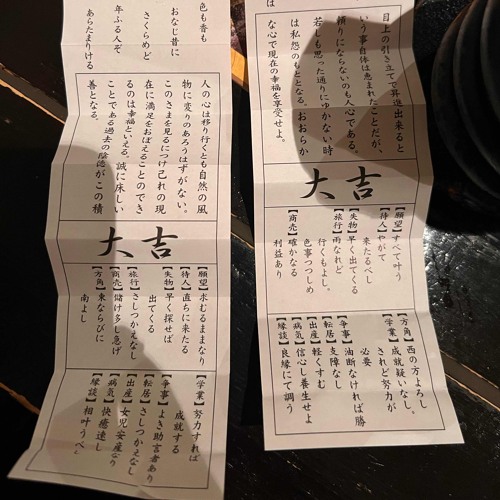 は
目上の引き立てで昇進出来ると
いう事自体は恵まれたことだが、
頼りにならないのも人心である。
若しも思った通りにゆかない時
は私怨のもととなる。おおらか
な心で現在の幸福を享受せよ。
大吉
【願望】すべて叶う
【待人】やがて
来たるべし
【失物】早く出てくる
【旅行】雨なれど
行くもよし。
色事つつしめ
【商売】確かなる
利益あり
【方角】西の方よろし
【学業】成就疑いなし。
されど努力が
必要
【争事】油断なければ勝
【転居】支障なし
【出産】軽くすむ
【病気】信心し養生せよ
【縁談】良縁にて調う
色も香も
おなじ昔に
さくらめど
年ふる人ぞ
あらたまりける
人の心は移り行くとも自然の風
物に変りのあろうはずがない。
このさまを見るにつけ己れの現
在に満足をおぼえることのでき
るのは幸福といえる。誠に床しい
ことである過去の陰徳がこの積
善となる。
大吉
【願望】求むるままなり
【待人】直ちに来たる
【失物】早く探せば
出てくる
【旅行】さしつかえなし
【商売】儲け多し急げ
【方角】東ならびに
南よし
【学業】努力すれば
成就する
【争事】よき助言者あり
【転居】さしつかえなし
【出産】女児安産なり
【病気】快癒速し
【縁談】相叶うべし